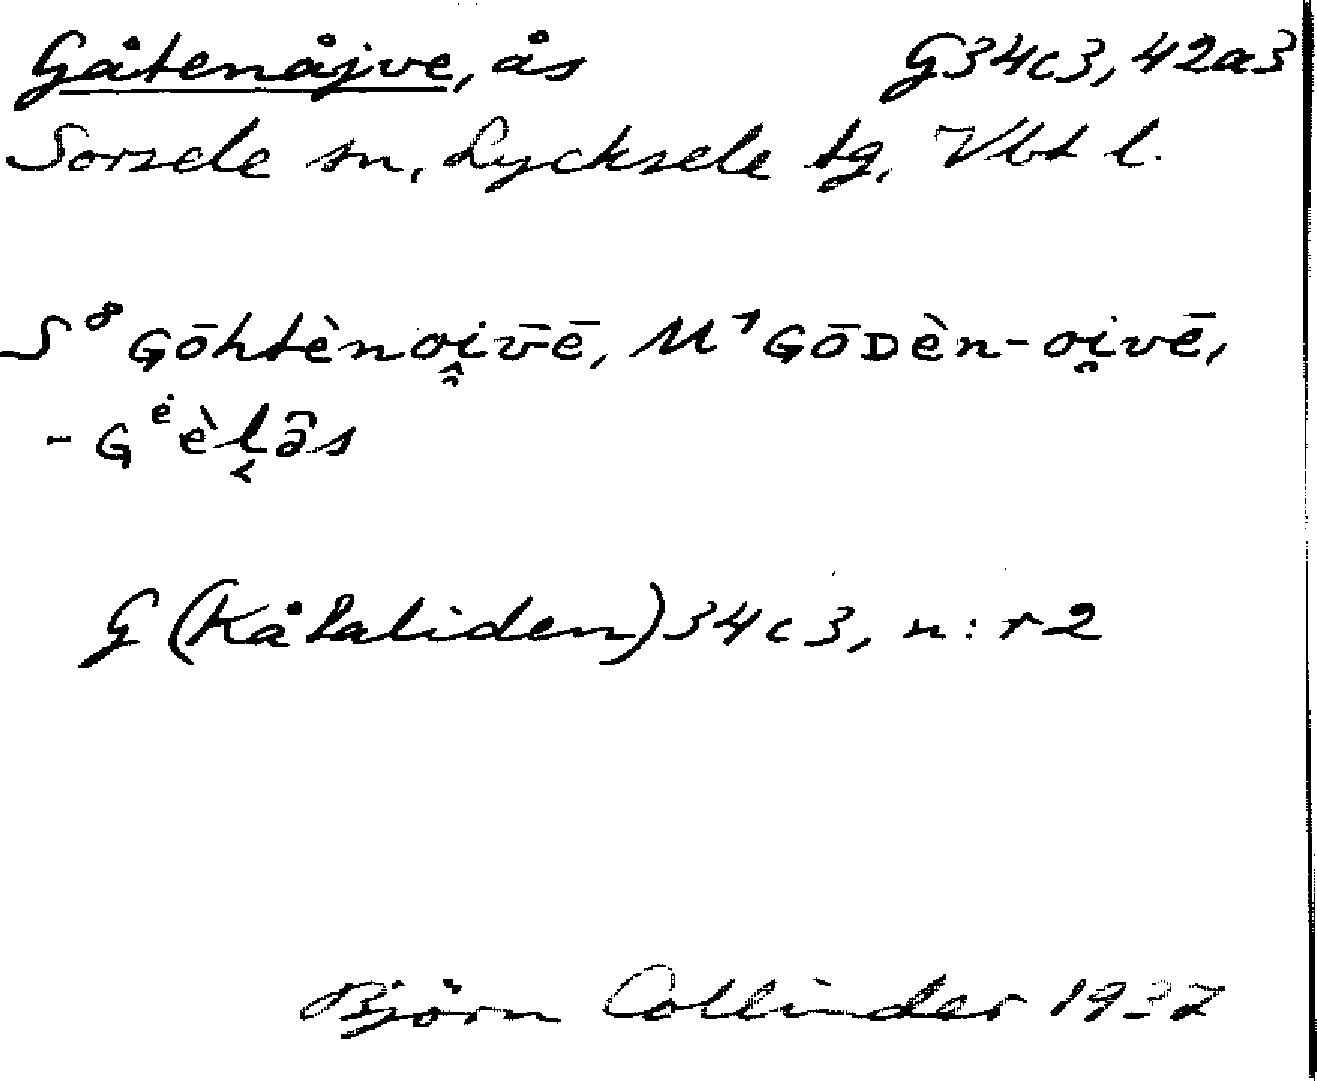 Gåtenåjve, ås G34c3, 42a3
Sorsele sn, Lycksele tg, Vbt l.
S⁸ Gōhtènoi̭v̄ē, M⁷ GōDèn-oi̭vē,
- Gėèl̬ə̑s
G (Kåtaliden) 34c3, n:r 2
Björn Collinder